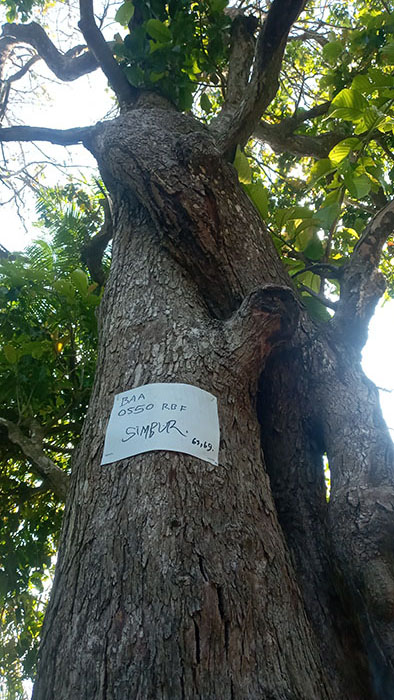 BAA
0550 RBF
SIMBUR.
69,69.